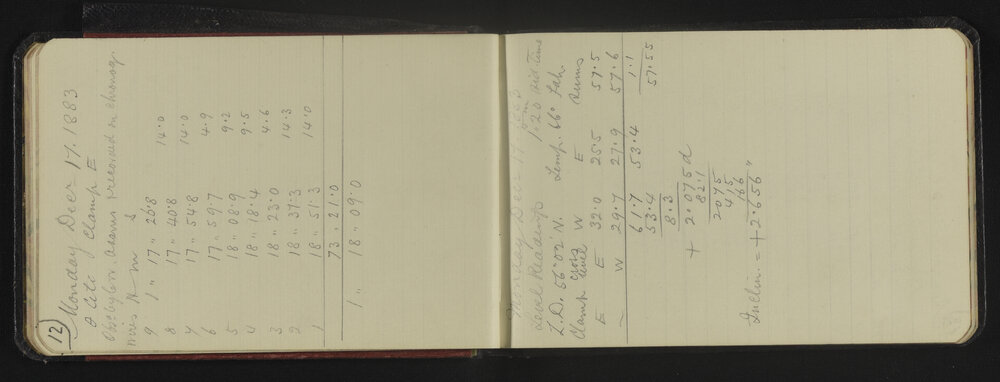 12
Monday Decr 17. 1883
θ Ceti Clamp E
Obs: by eye assns & recorded on chronog.
wires H m s
9 1 " 17 " 26.8 14.0
8 17 " 40.8 14.0
7 17 " 54.8 4.9
6 17 " 59.7 9.2
5 18 " 08.9 9.5
4 18 " 18.4 4.6
3 18 " 23.0 14.3
2 18 " 37.3 14.0
1 18 " 51.3
73 . 21.0
1 " 18 " 09.0
Monday Decr 17 1883
Level Readings 1.20 Sid Time
Z.D. 56° 02 N. Temp. 66° Fah.
Clamp level W E Sums
E E 32.0 25.5 57.5
" W 29.7 27.9 57.6
61.7 53.4 1.1
53.4 57.55
8.3
+ 2.075 d
82.1
2075
415
166
Inclin. = + 2.656"